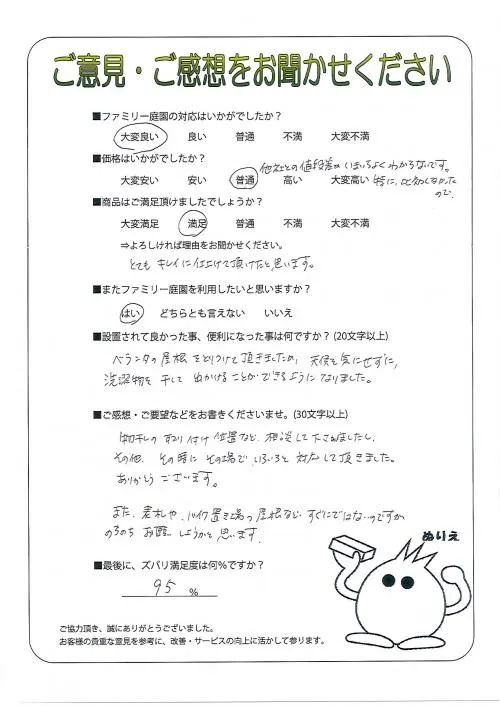 ご意見・ご感想をお聞かせください
■ファミリー庭園の対応はいかがでしたか？
大変良い 良い 普通 不満 大変不満
■価格はいかがでしたか？
他社との値段差がいまいちよくわからないです。
大変安い 安い 普通 高い 大変高い 特に、比較しなかった
ので、
■商品はご満足頂けましたでしょうか？
大変満足 満足 普通 不満 大変不満
⇒よろしければ理由をお聞かせください。
とてもキレイに仕上げて頂けたと思います。
■またファミリー庭園を利用したいと思いますか？
はい どちらとも言えない いいえ
■設置されて良かった事、便利になった事は何ですか？(20文字以上)
ベランダの屋根をとりつけて頂きましたため、天候を気にせずに、
洗濯物を干して出かけることができるようになりました。
■ご感想・ご要望などをお書きくださいませ。(30文字以上)
物干しの取り付け位置など、相談して下さいましたし、
その他、その時にその場で、いろいろと対応して頂きました。
ありがとうございます。
また、表札や、バイク置き場の屋根など、すぐにではないのですが
のちのちお願いしようかと思います。
ぬりえ
■最後に、ズバリ満足度は何％ですか？
95 %
ご協力頂き、誠にありがとうございました。
お客様の貴重な意見を参考に、改善・サービスの向上に活かして参ります。